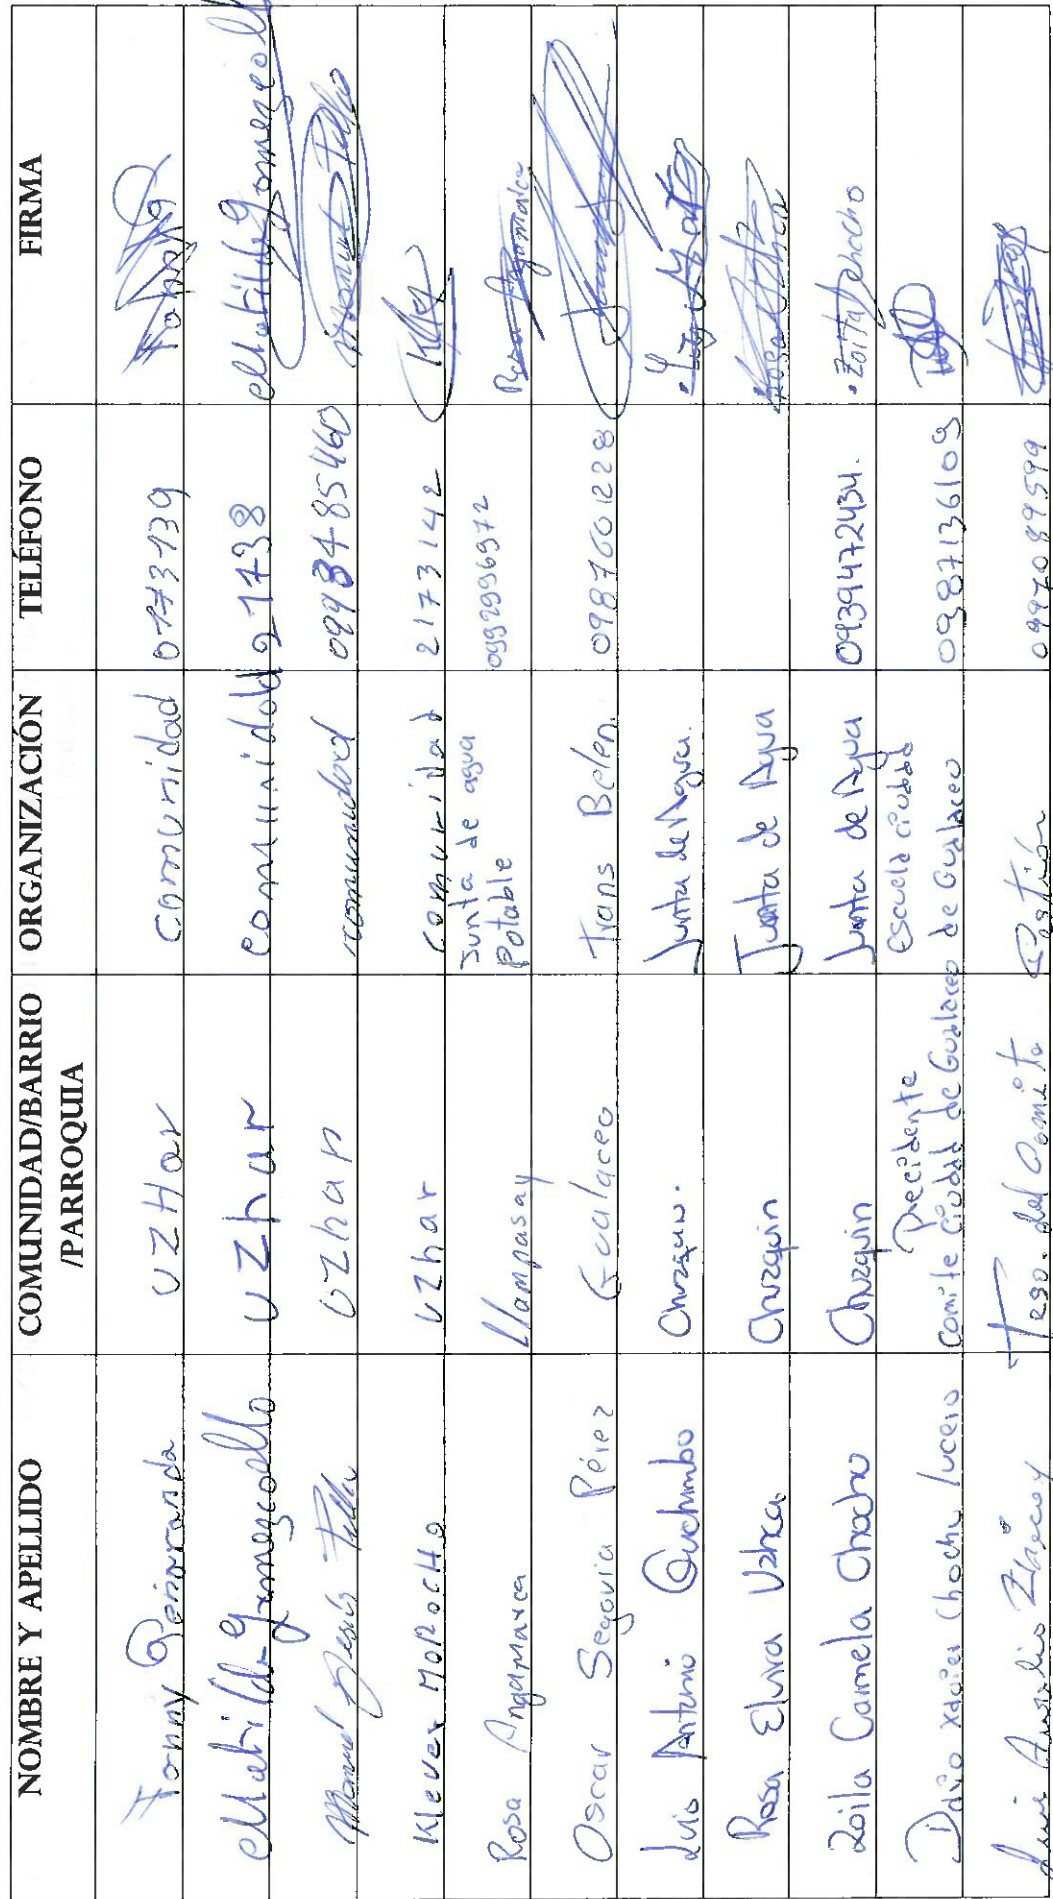 NOMBRE Y APELLIDO COMUNIDAD/BARRIO /PARROQUIA ORGANIZACIÓN TELÉFONO FIRMA
Fanny Peñaranda UZHar Comunidad 0173739 Fanny
Matilde uzhar comunidad 21738 Matilde
Manuel Jesus Pella uzhar comunidad 0998485460 Manuel Pella
Klever MoRocHo uzhar comunidad 2173142
Rosa Angamarca Llampasay Junta de agua Potable 0992996972 Rosa Angamarca
Oscar Segovia Pérez Gualaceo Trans Belen. 0987601228
Luis Antonio Quchimbo Chuzquin. Junta de Agua.
Rosa Elvira Uzhca. Chuzquin Junta de Agua
Zoila Carmela Chocho Chuzquin Junta de Agua 0939472434.
Davio Xavier Chochu lucero Precidente comite ciudad de Gualaceo Escuela ciudad de Gualaceo 0987136109
Luis Aurelio Teso. del Comite Gestión 0997089599